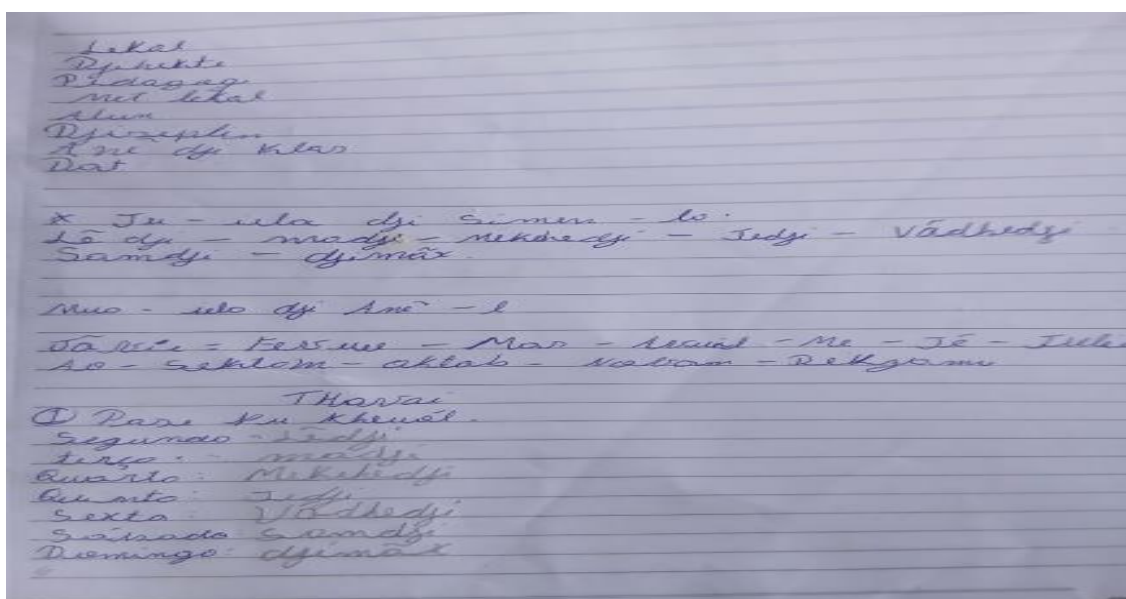 Lekal
Djihekte
Pidagog
Met lekal
Alun
Djiseplin
Ane dji klas
Dat
* Ju - ula dji Simen - lo.
Lẽ dji - madji - Mekhedji - Jedji - Vãdhedji
Samdji - djimãx.
Muo - ulo dji Ané - l
- Mas - - Me - Jẽ -
- aktob -
THavai
① Pase Ku Kheuól.
Segundo - Lẽdji
terço: - madji
Quarto: Mekhedji
Quinto: Jedji
Sexta: Vãdhedji
Sábado Samdji
Domingo: djimãx